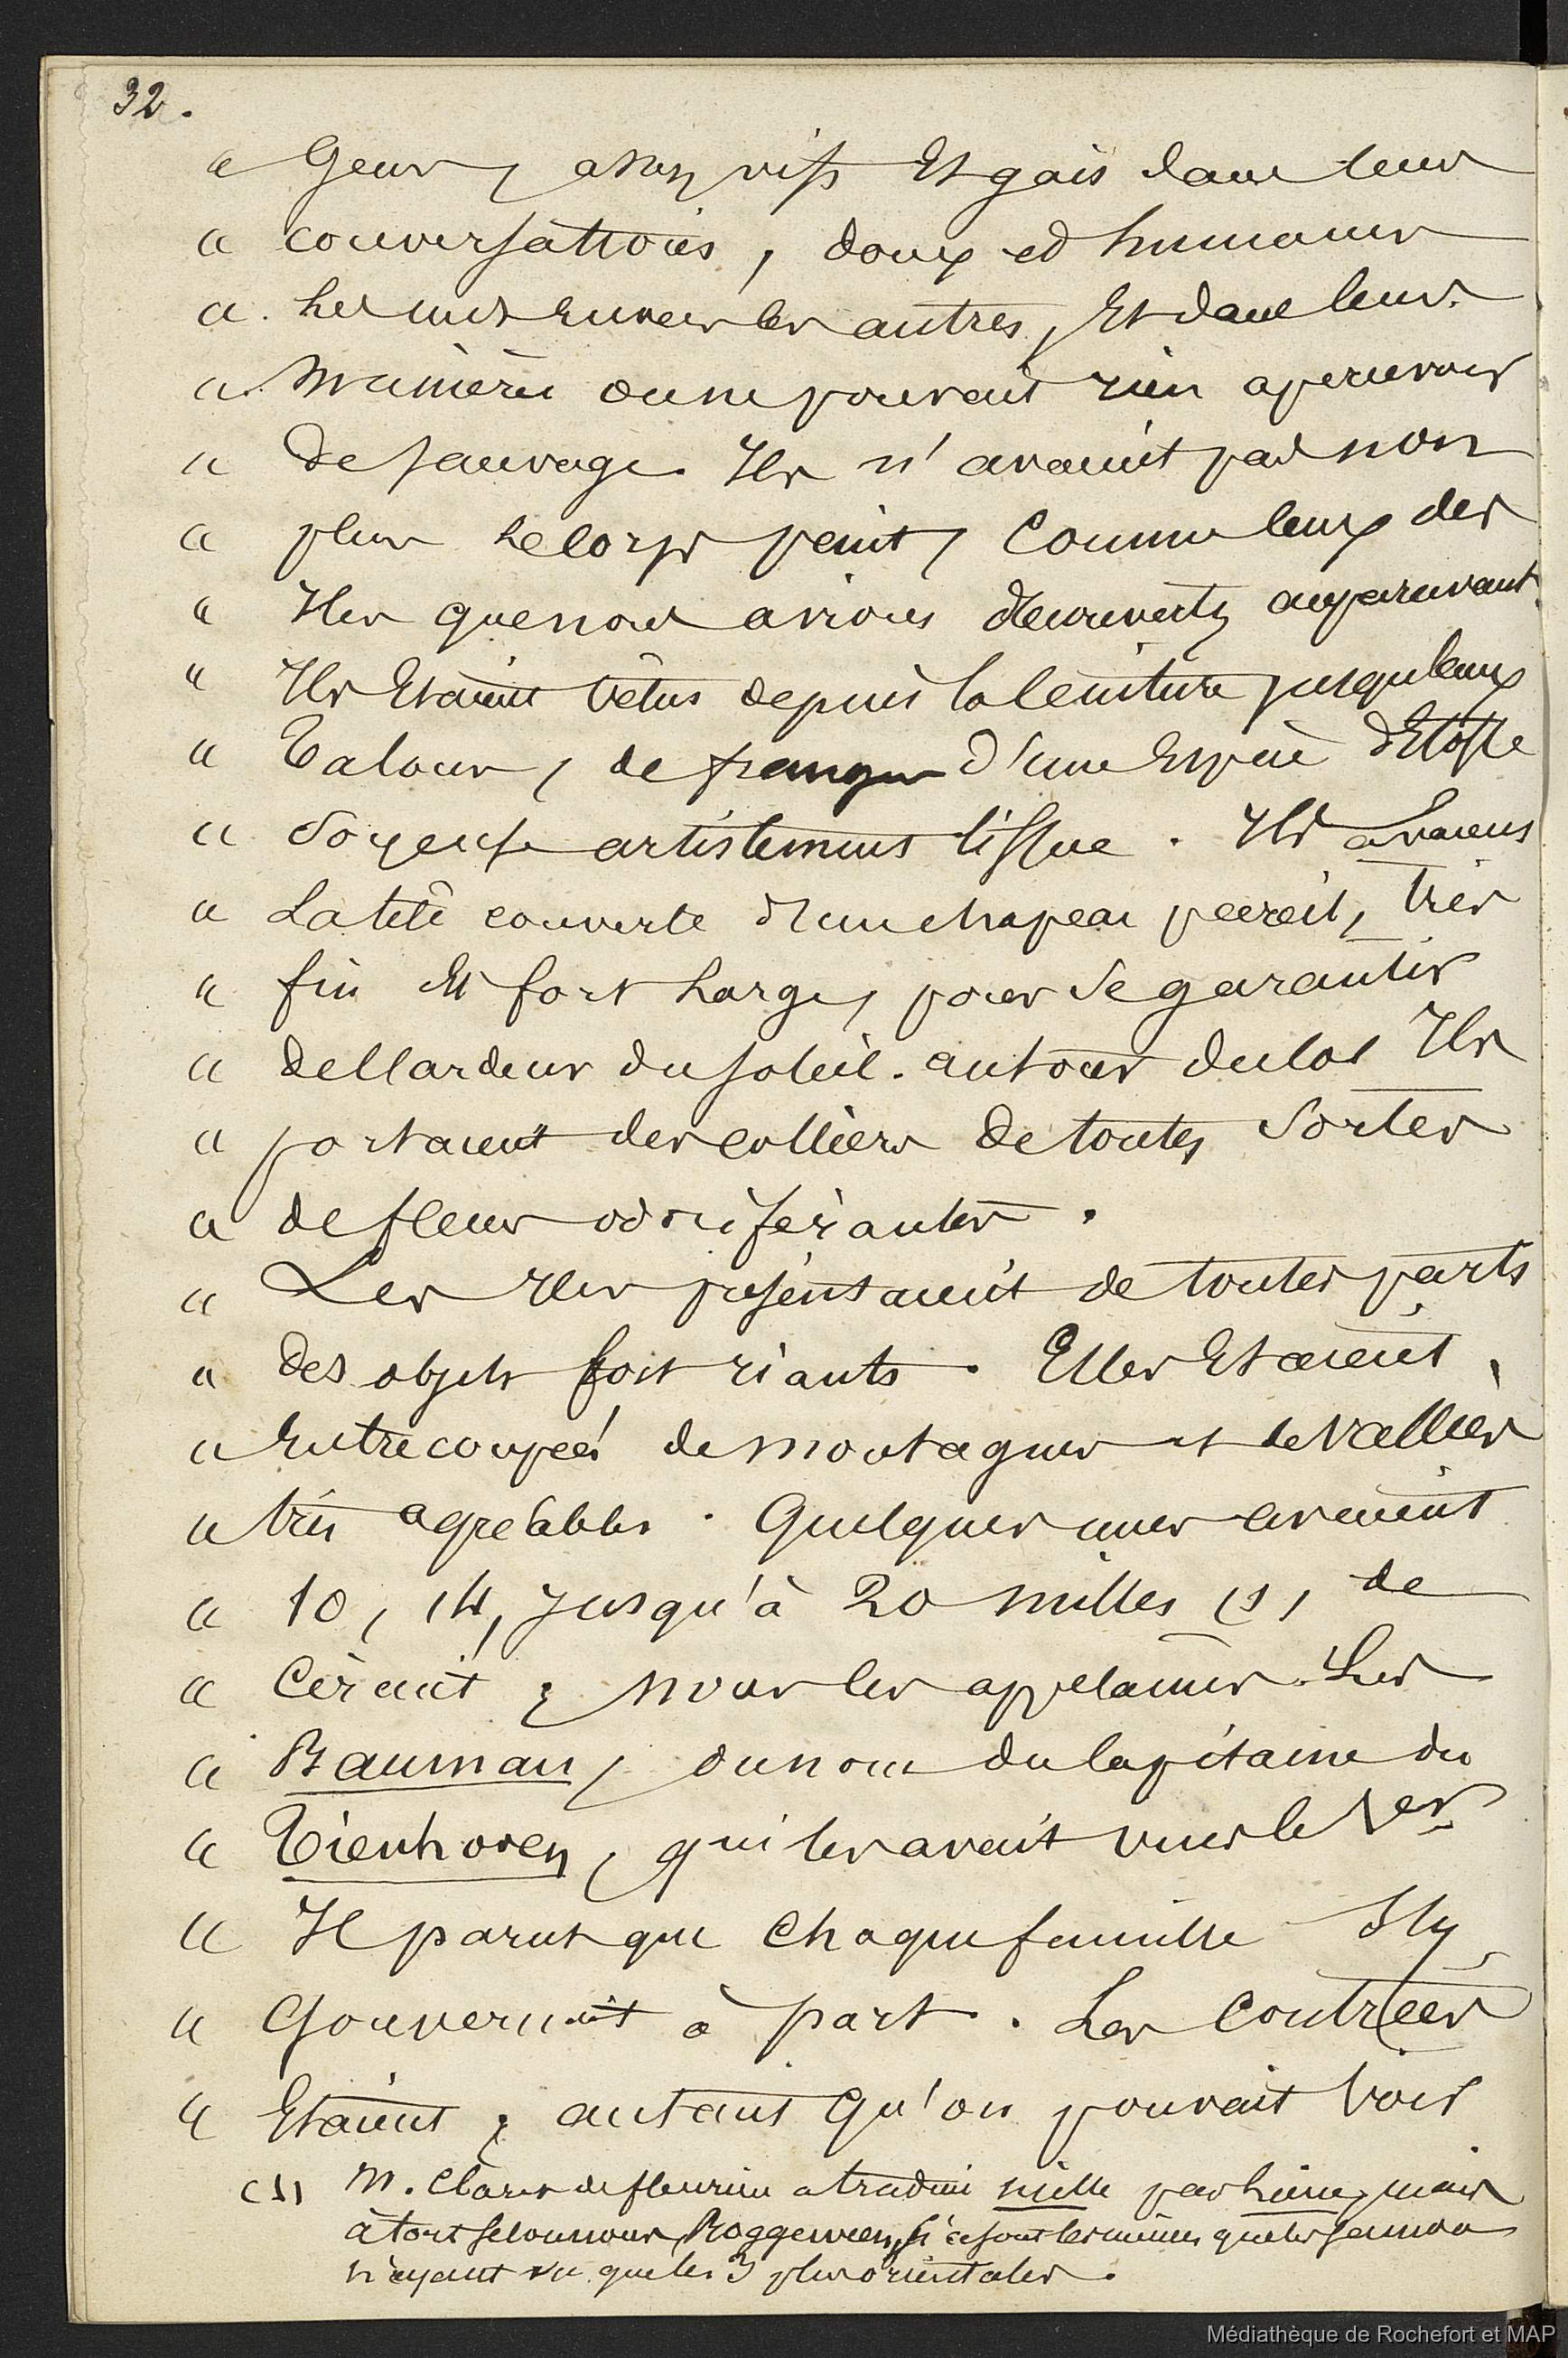 32.
« Gens, assez vifs Et gais dans leurs
« conversations, doux et humains
« Les uns Envers les autres, Et dans leurs
« Manières on ne pouvait rien apercevoir
« De sauvage. Ils n'avaient pas non
« plus Le Corps peint, Comme Ceux des
« Iles que nous avions découverts auparavant.
« Ils Etaient Vêtus depuis la Ceinture jusqu'aux
« Talons, de franges d'une Espèce d'Etoffe
« Soyeuse artistement tissue. Ils avaient
« La tête couverte d'un chapeau pareil, très
« fin Et fort Large, pour Se garantir
« de l'ardeur du soleil. autour du Col Ils
« portaient des colliers de toutes Sortes
« de fleurs odoriférantes.
« Les Iles présentaient de toutes parts
« Des objets fort riants. Elles Etaient,
« Entrecoupées de montagnes et de Vallées
« très agréables. Quelques unes avaient
« 10, 14, Jusqu'à 20 milles (1) de
« Circuit ; nous les appelâmes Les
« Bauman, du nom du Capitaine du
« Tienhoven, qui les avait vues le 1er.
« Il parut que Chaque famille S'y
« Gouvernait à part. Les Contrées
« Etaient ; autant Qu'on pouvait Voir
(1) M. Claret de fleurieu a traduit mille par Lieue, mais
à tort selon nous, Roggeween, si ce sont les mêmes que les Samoa
n'ayant vu que les 3 plus orientales.
Médiathèque de Rochefort et MAP